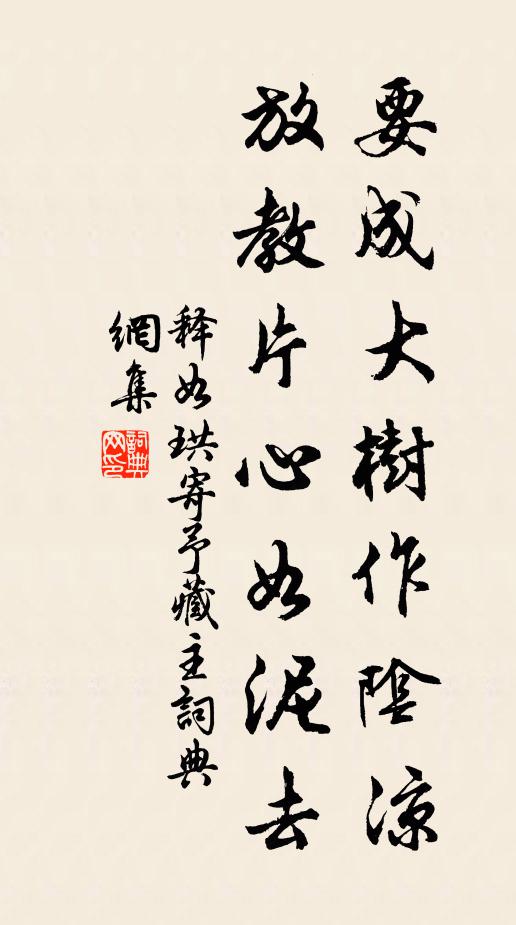 要成大樹作陰涼
放教片心如泥去
释如珙寄予藏主詞典
網集
詞典網印